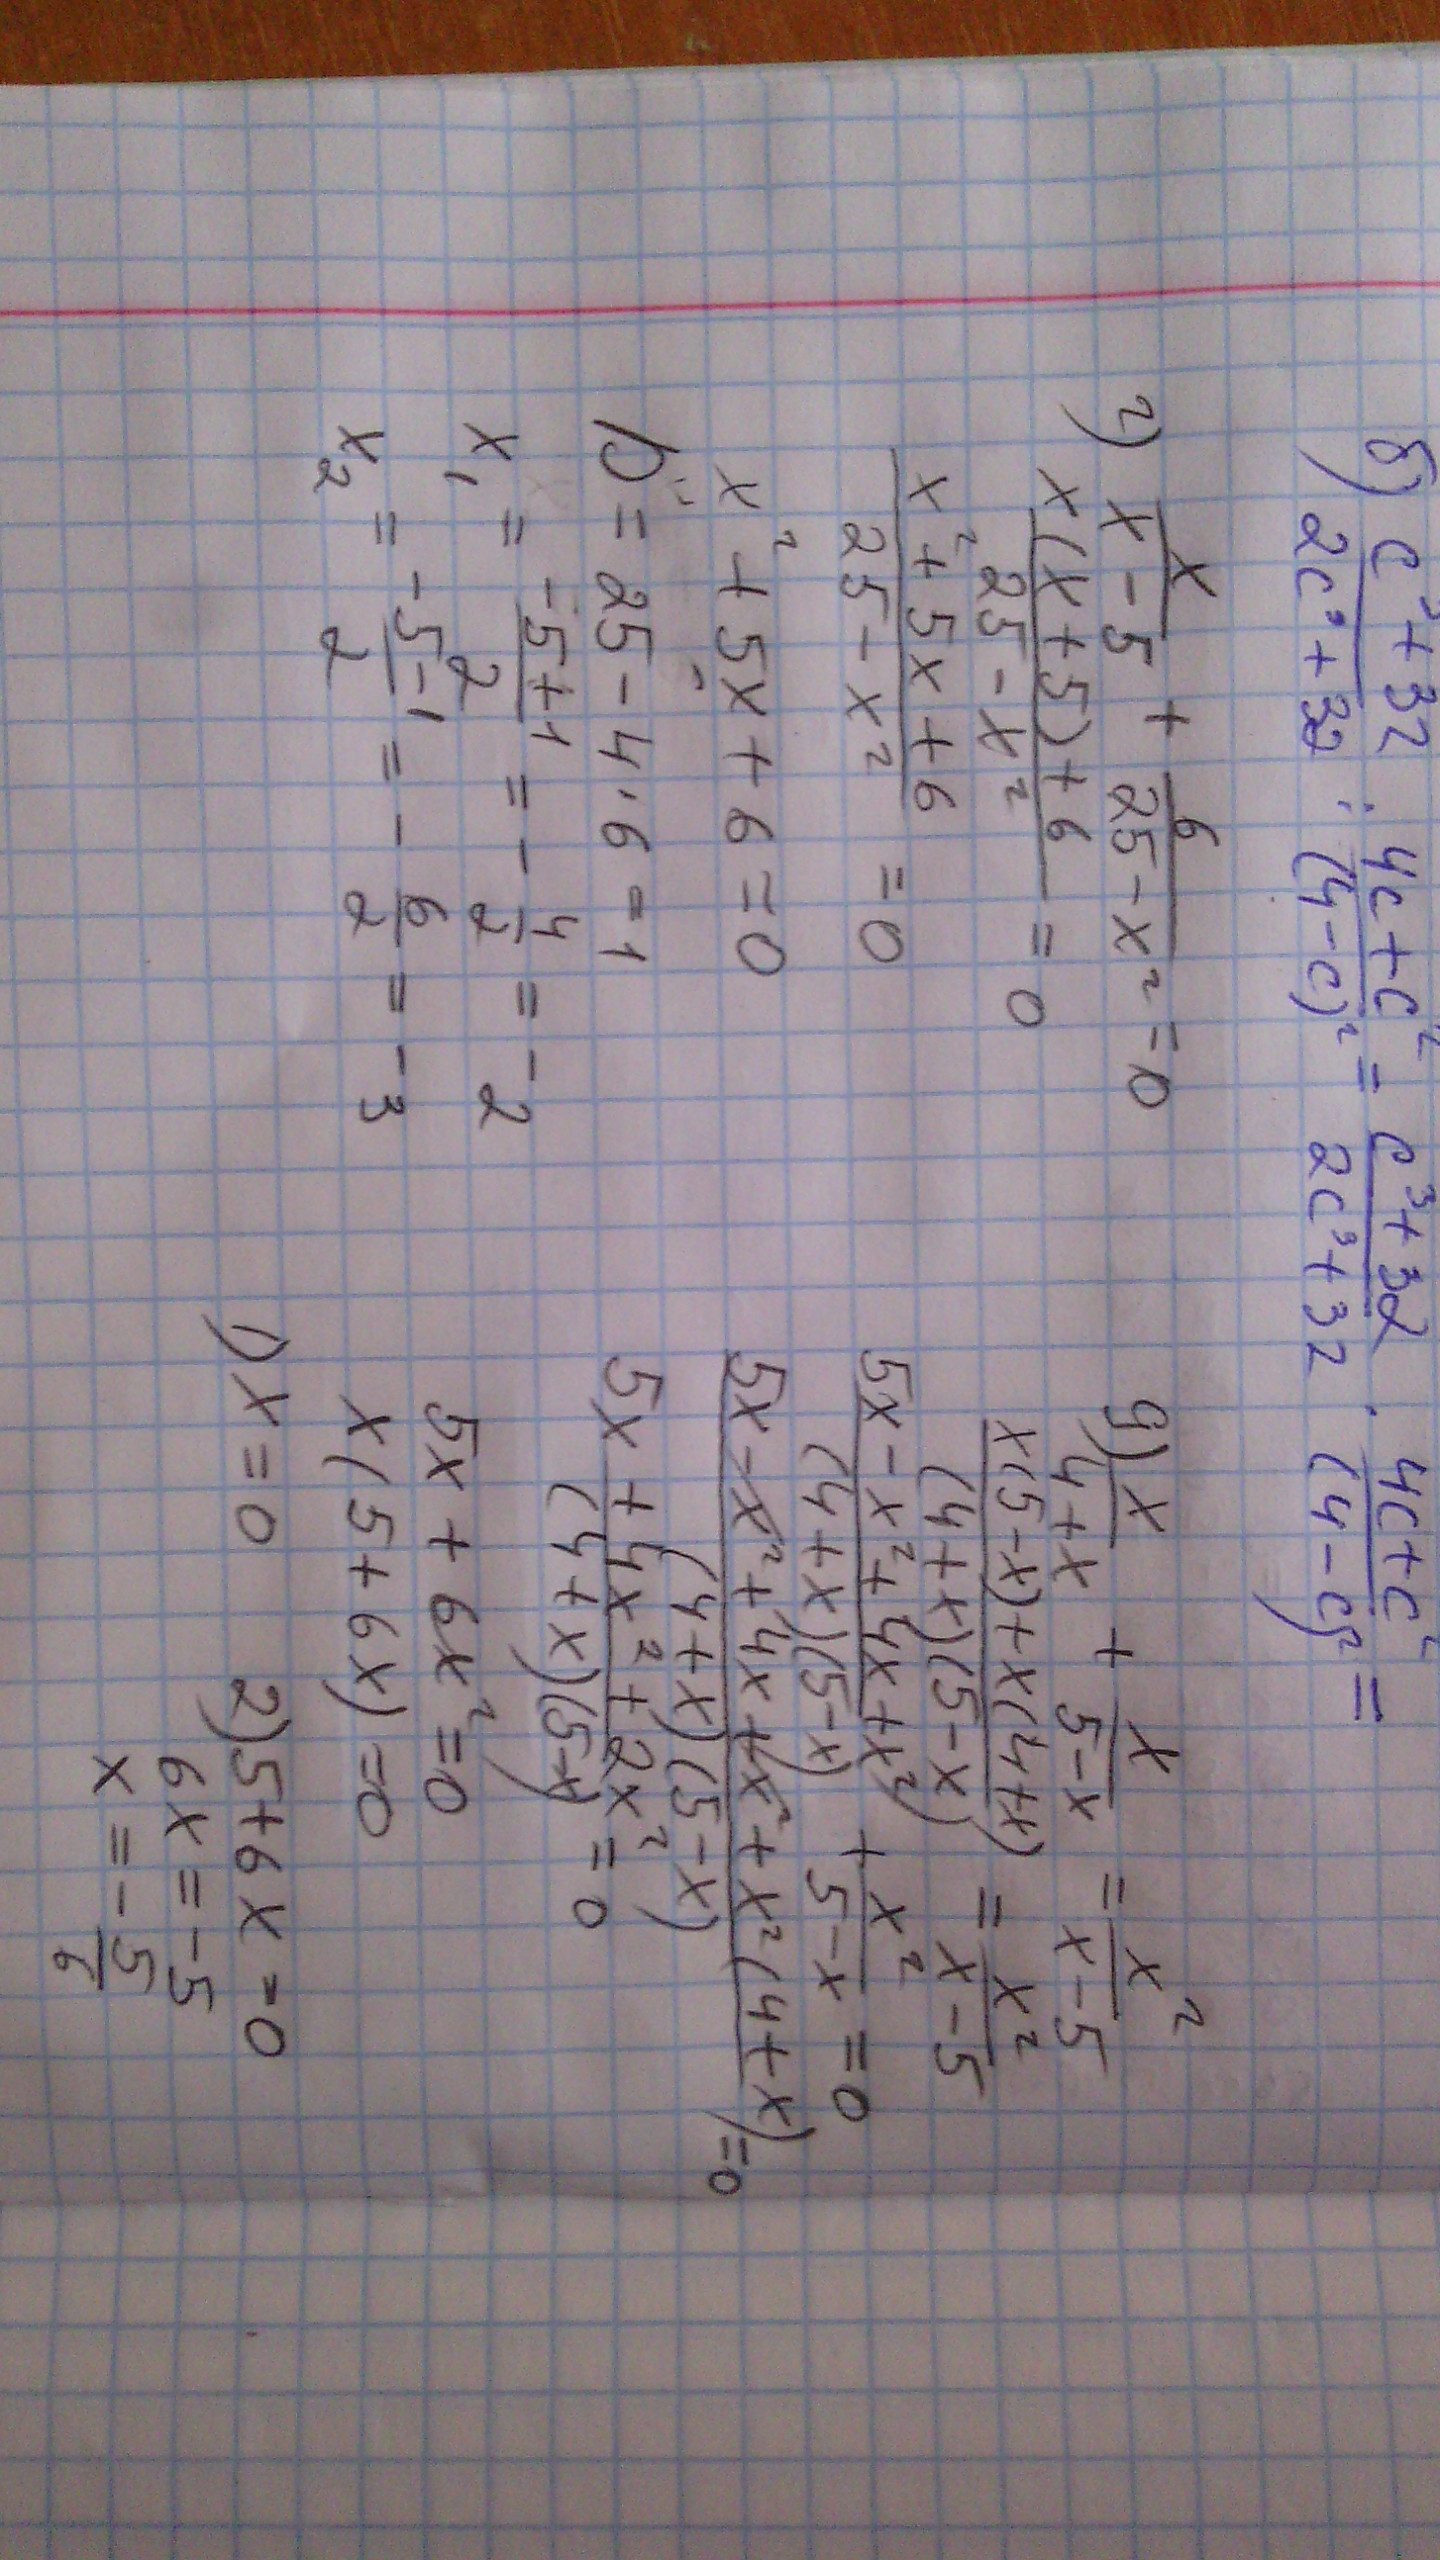 б) c³+32 / 2c³+32 : 4c+c² / (4-c)² = c³+32 / 2c³+32 · 4c+c² / (4-c)² =
г) x / x-5 + 6 / 25-x² = 0
x(x+5)+6 / 25-x² = 0
x²+5x+6 / 25-x² = 0
x²+5x+6=0
D = 25-4·6=1
x₁ = -5+1 / 2 = - 4/2 = -2
x₂ = -5-1 / 2 = - 6/2 = -3
g) x / 4+x + x / 5-x = x² / x-5
x(5-x)+x(4+x) / (4+x)(5-x) = x² / x-5
5x-x²+4x+x² / (4+x)(5-x) + x² / 5-x = 0
5x-x²+4x+x²+x²(4+x) / (4+x)(5-x) =0
5x+4x²+2x² / (4+x)(5-x) = 0
5x+6x²=0
x(5+6x)=0
1) x=0
2) 5+6x=0
6x=-5
x=-5/6